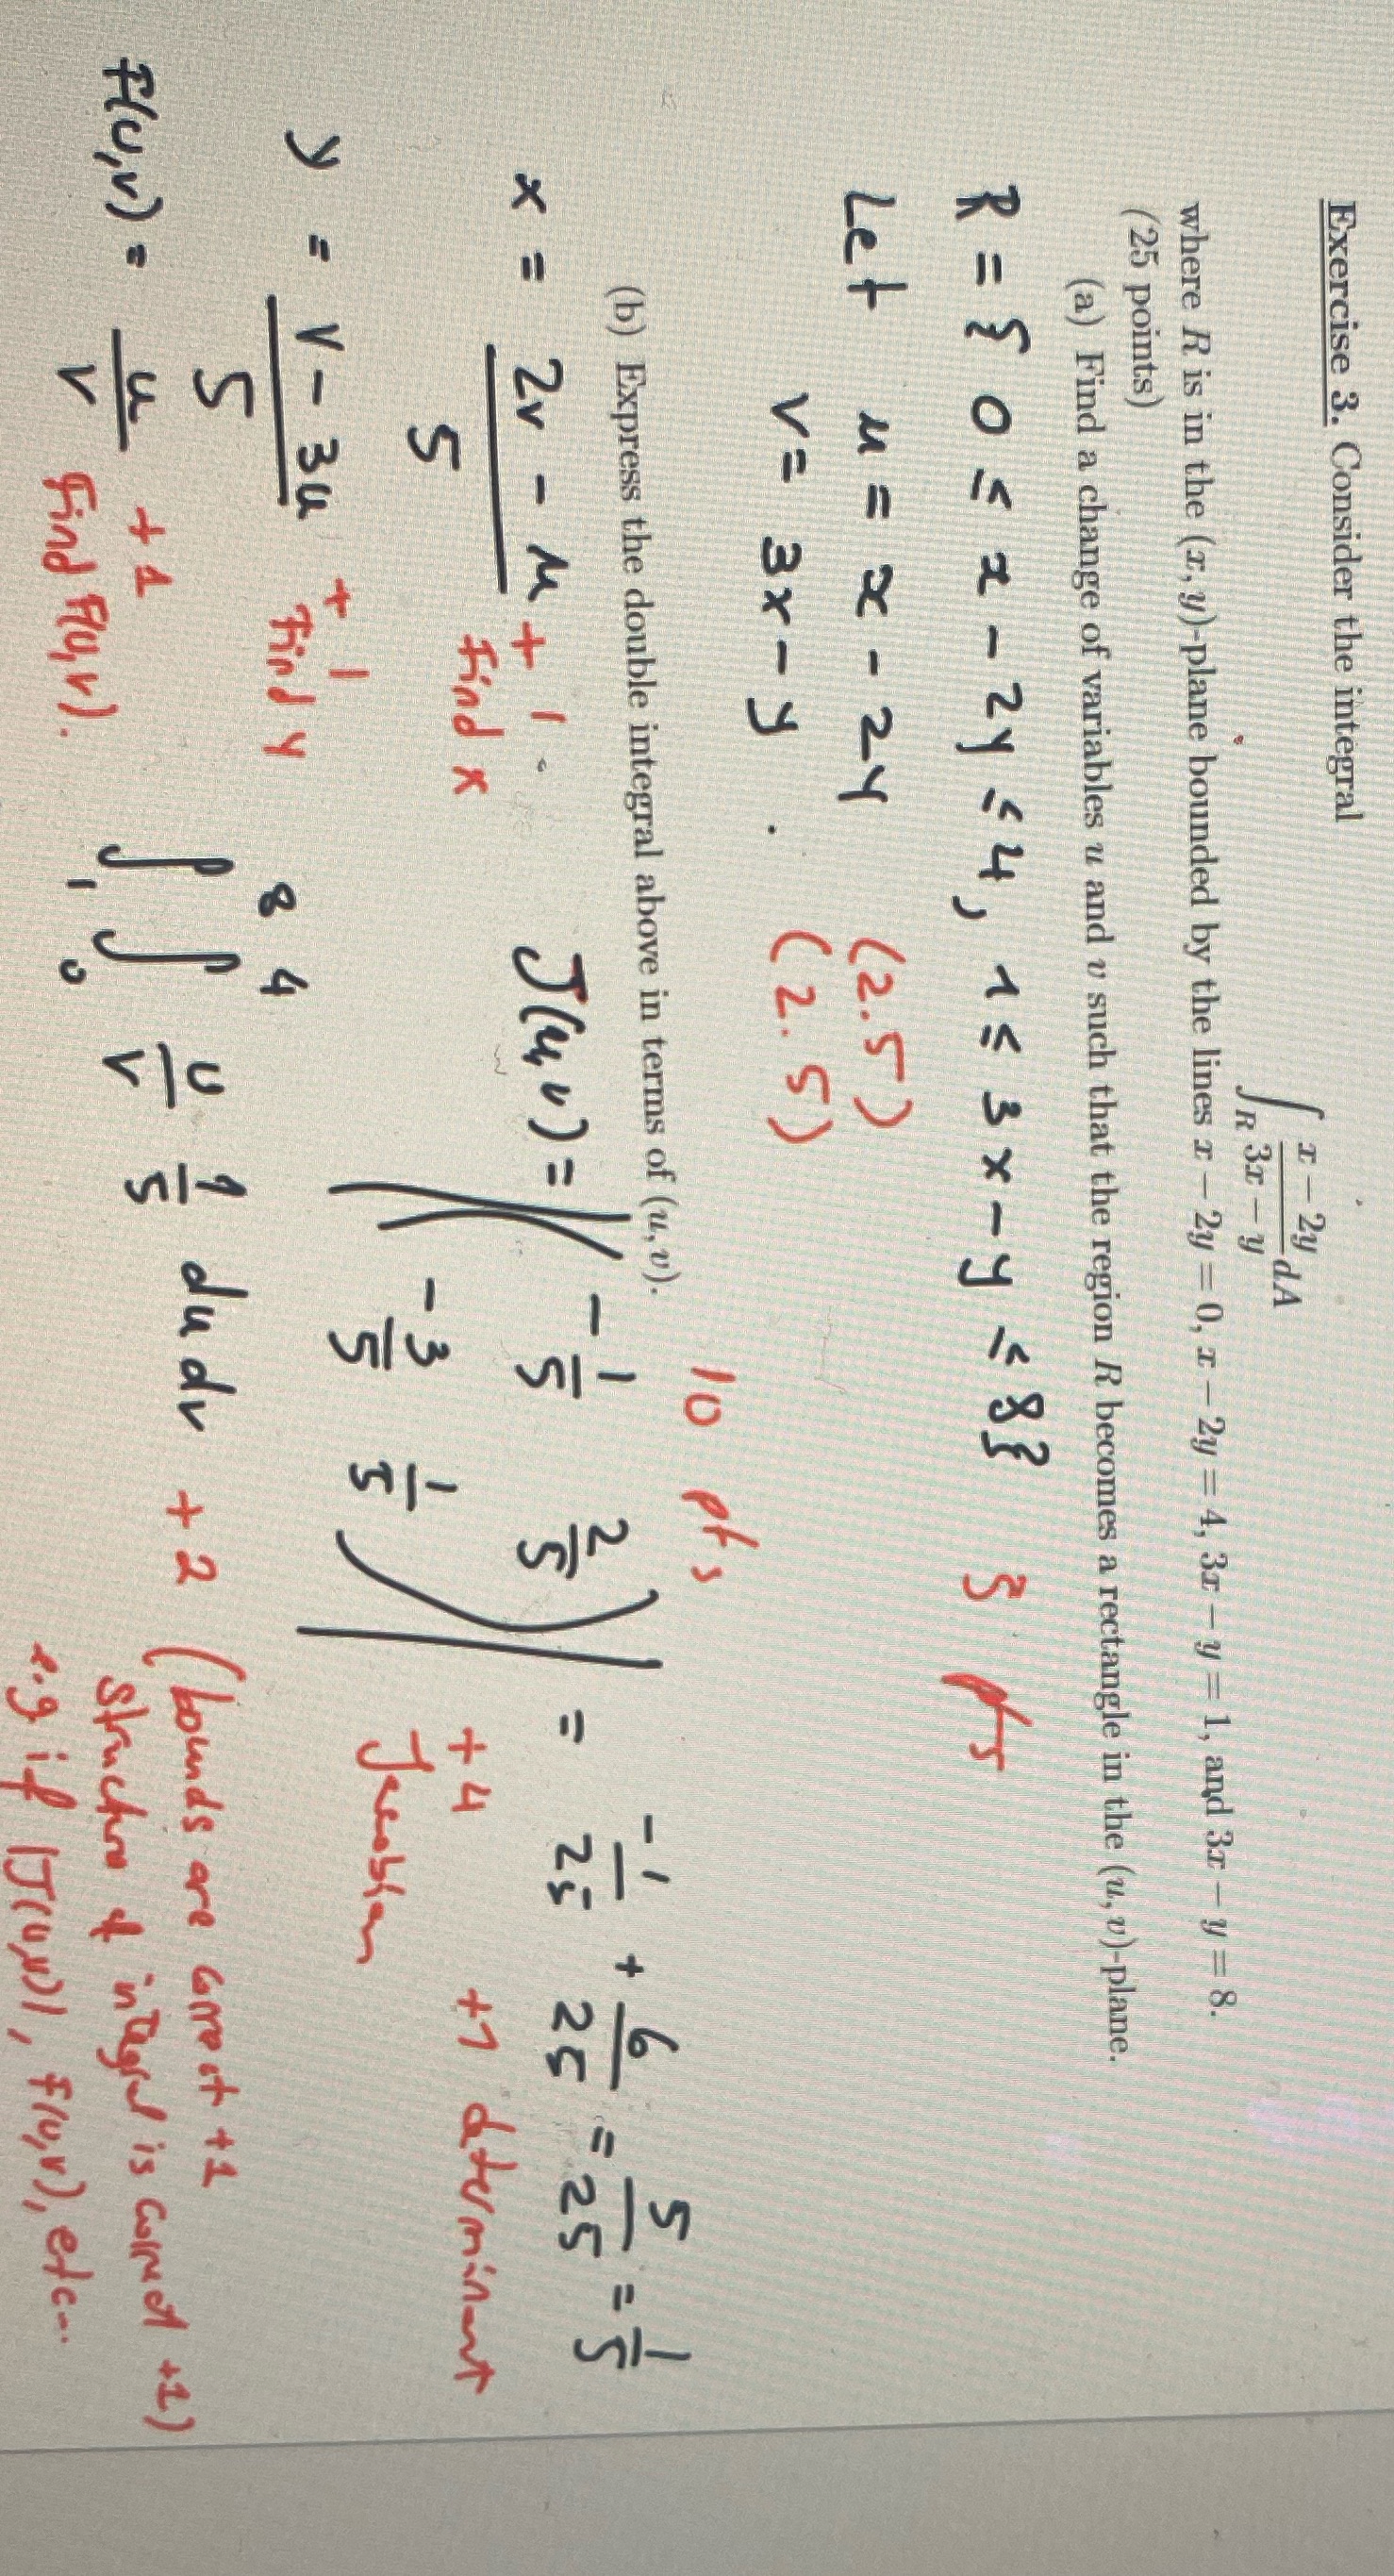 Exercise 3. Consider the integral
∫_R (x − 2y)/(3x − y) dA
where R is in the (x, y)-plane bounded by the lines x − 2y = 0, x − 2y = 4, 3x − y = 1, and 3x − y = 8.
(25 points)
(a) Find a change of variables u and v such that the region R becomes a rectangle in the (u, v)-plane.
R = { 0 ≤ x − 2y ≤ 4, 1 ≤ 3x − y ≤ 8} 5 pts
Let u = x − 2y (2.5)
v = 3x − y . (2.5)
10 pts
(b) Express the double integral above in terms of (u, v).
x = (2v − u)/5 +1 Find x
J(u, v) = |( −1/5 2/5
−3/5 1/5 )| = −1/25 + 6/25 = 5/25 = 1/5
+4 Jacobian +1 determinant
y = (v − 3u)/5 +1 Find y
f(u,v) = u/v +1 Find f(u,v).
∫_1^8 ∫_0^4 u/v 1/5 du dv +2 (bounds are correct +1
structure of integral is correct +1)
e.g if |J(u,v)|, f(u,v), etc...